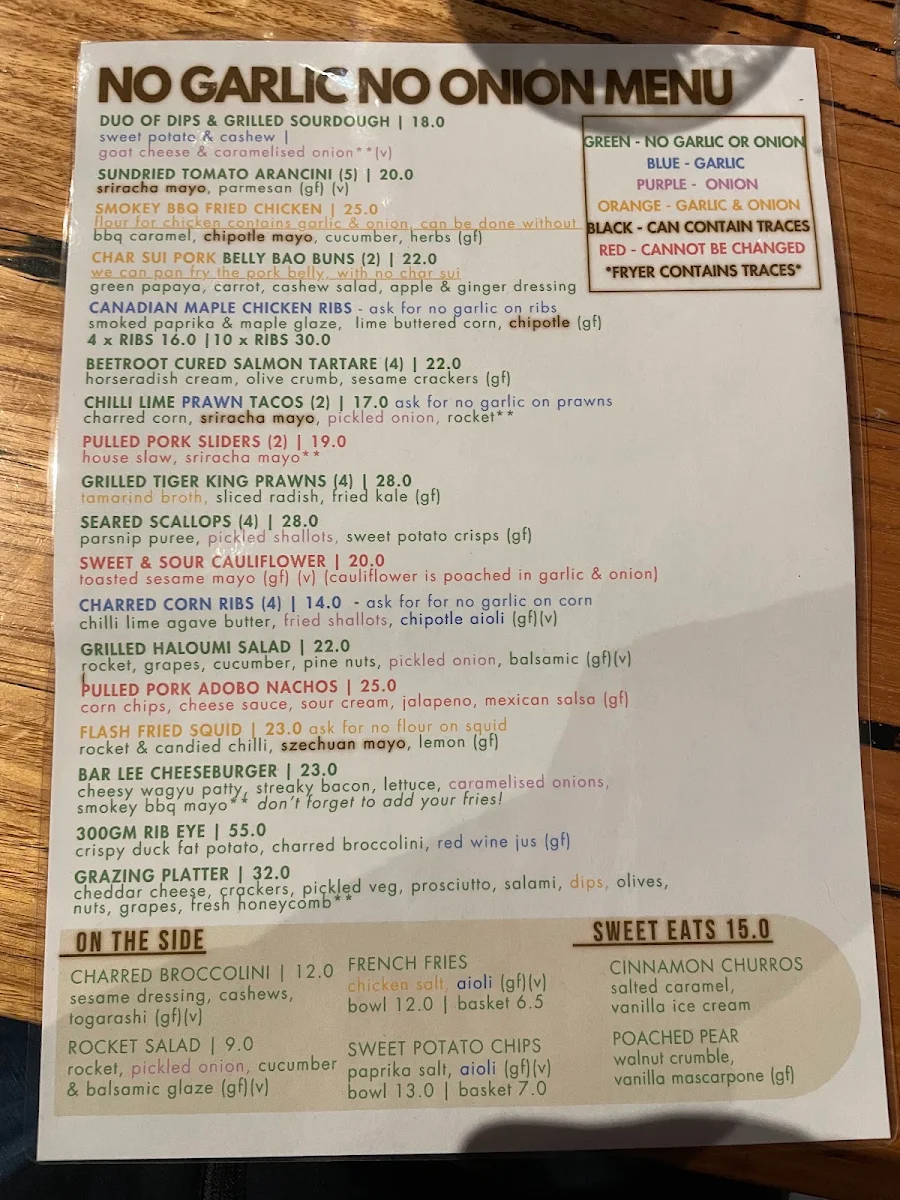 NO GARLIC NO ONION MENU
DUO OF DIPS & GRILLED SOURDOUGH | 18.0
sweet potato & cashew |
goat cheese & caramelised onion**(v)
GREEN - NO GARLIC OR ONION
BLUE - GARLIC
PURPLE - ONION
ORANGE - GARLIC & ONION
BLACK - CAN CONTAIN TRACES
RED - CANNOT BE CHANGED
*FRYER CONTAINS TRACES*
SUNDRIED TOMATO ARANCINI (5) | 20.0
sriracha mayo, parmesan (gf) (v)
SMOKEY BBQ FRIED CHICKEN | 25.0
flour for chicken contains garlic & onion, can be done without
bbq caramel, chipotle mayo, cucumber, herbs (gf)
CHAR SUI PORK BELLY BAO BUNS (2) | 22.0
we can pan fry the pork belly, with no char sui
green papaya, carrot, cashew salad, apple & ginger dressing
CANADIAN MAPLE CHICKEN RIBS - ask for no garlic on ribs
smoked paprika & maple glaze, lime buttered corn, chipotle (gf)
4 x RIBS 16.0 |10 x RIBS 30.0
BEETROOT CURED SALMON TARTARE (4) | 22.0
horseradish cream, olive crumb, sesame crackers (gf)
CHILLI LIME PRAWN TACOS (2) | 17.0 ask for no garlic on prawns
charred corn, sriracha mayo, pickled onion, rocket**
PULLED PORK SLIDERS (2) | 19.0
house slaw, sriracha mayo**
GRILLED TIGER KING PRAWNS (4) | 28.0
tamarind broth, sliced radish, fried kale (gf)
SEARED SCALLOPS (4) | 28.0
parsnip puree, pickled shallots, sweet potato crisps (gf)
SWEET & SOUR CAULIFLOWER | 20.0
toasted sesame mayo (gf) (v) (cauliflower is poached in garlic & onion)
CHARRED CORN RIBS (4) | 14.0 - ask for for no garlic on corn
chilli lime agave butter, fried shallots, chipotle aioli (gf)(v)
GRILLED HALOUMI SALAD | 22.0
rocket, grapes, cucumber, pine nuts, pickled onion, balsamic (gf)(v)
PULLED PORK ADOBO NACHOS | 25.0
corn chips, cheese sauce, sour cream, jalapeno, mexican salsa (gf)
FLASH FRIED SQUID | 23.0 ask for no flour on squid
rocket & candied chilli, szechuan mayo, lemon (gf)
BAR LEE CHEESEBURGER | 23.0
cheesy wagyu patty, streaky bacon, lettuce, caramelised onions,
smokey bbq mayo** don't forget to add your fries!
300GM RIB EYE | 55.0
crispy duck fat potato, charred broccolini, red wine jus (gf)
GRAZING PLATTER | 32.0
cheddar cheese, crackers, pickled veg, prosciutto, salami, dips, olives,
nuts, grapes, fresh honeycomb**
ON THE SIDE
CHARRED BROCCOLINI | 12.0
sesame dressing, cashews,
togarashi (gf)(v)
ROCKET SALAD | 9.0
rocket, pickled onion, cucumber
& balsamic glaze (gf)(v)
FRENCH FRIES
chicken salt, aioli (gf)(v)
bowl 12.0 | basket 6.5
SWEET POTATO CHIPS
paprika salt, aioli (gf)(v)
bowl 13.0 | basket 7.0
SWEET EATS 15.0
CINNAMON CHURROS
salted caramel,
vanilla ice cream
POACHED PEAR
walnut crumble,
vanilla mascarpone (gf)